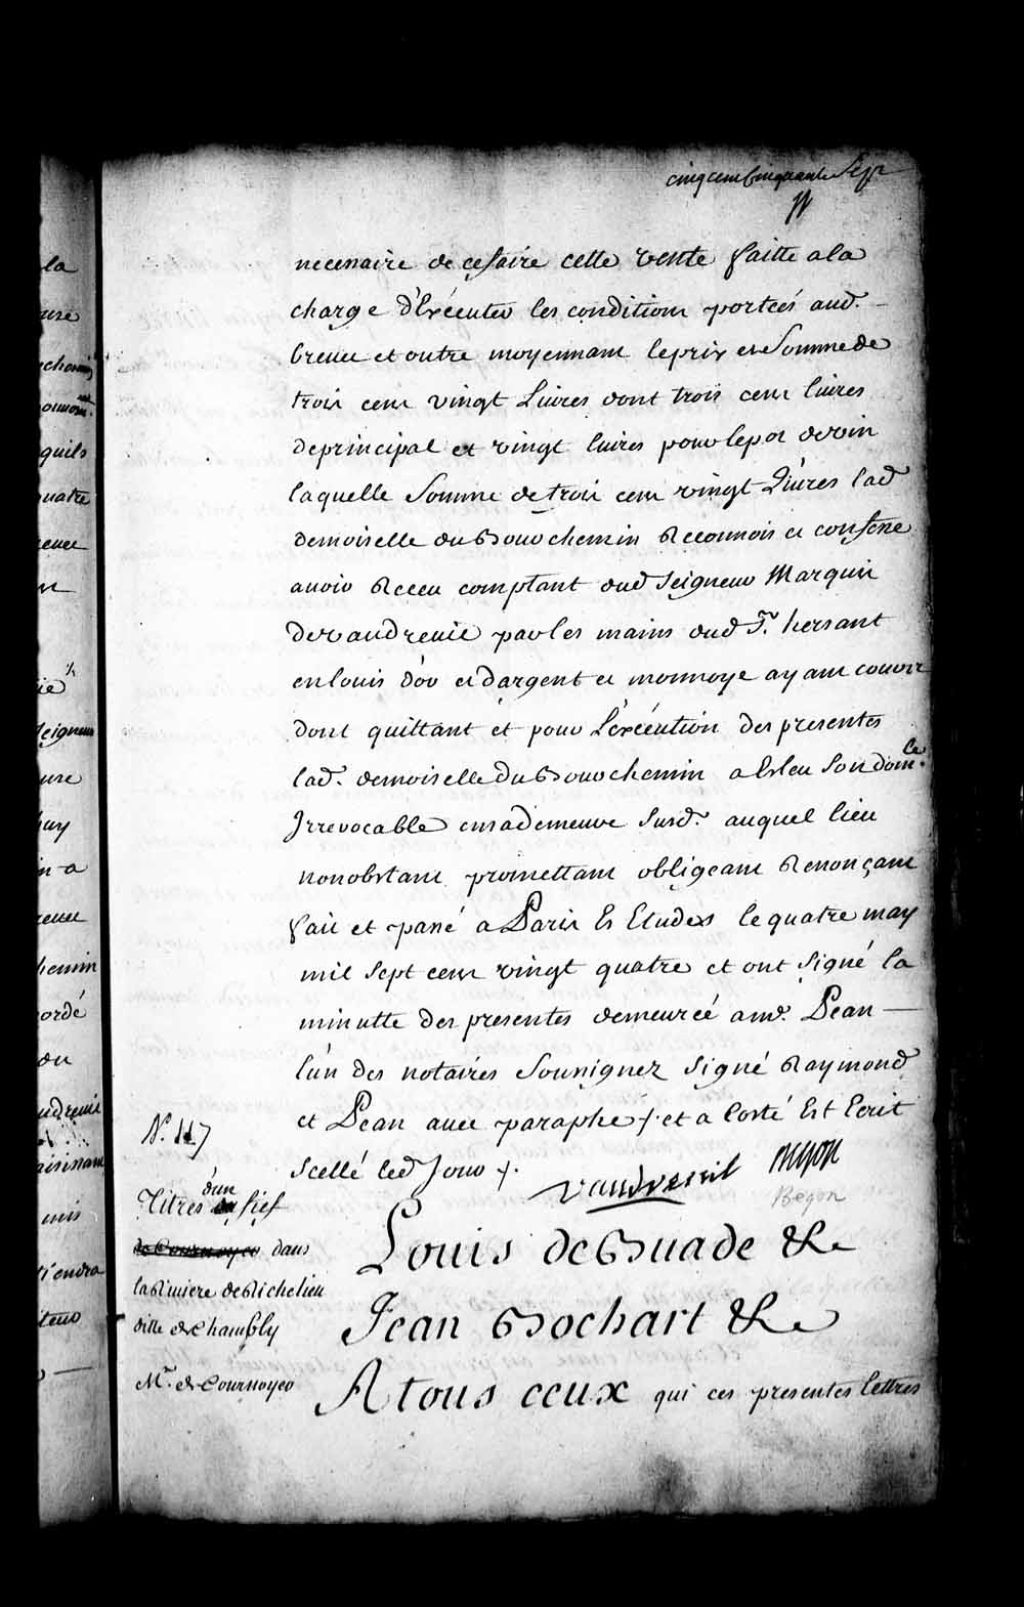 cinq cent Cinquante Sept
necessaire de ce faire cette vente faitte a la
charge d'Exécuter les conditions portées aud.
brevet et outre moyennant le prix et Somme de
trois cent vingt Livres dont trois cent livres
de principal et vingt livres pour le pot de vin
laquelle Somme de trois cent vingt Livres lad
demoiselle du Bouchemin Reconnois et confesse
avoir Receu comptant dud Seigneur Marquis
de vaudreuil par les mains dud Sr. hersant
en louis d'or et d'argent et monnoye ayant cours
dont quittant et pour L'exécution des presentes
lad. demoiselle du Bouchemin a Esleu Son domle.
Irrevocable en sa demeure Susd. auquel lieu
nonobstant promettant obligeant Renonçant
fait et passé a Paris Es Etudes le quatre may
mil Sept cent vingt quatre et ont Signé la
minutte des presentes demeurée a md. Pean
l'un des notaires Soussignez Signé Raymond
et Pean avec paraphe et a Costé Est Ecrit
scellé led Jour
vaudreuil Begon
Begon
Louis de Buade &c
Jean Bochart &c
A tous ceux qui ces presentes lettres
N. 117
Titres d'un fief
de Cournoyer dans
la Riviere de Richelieu
ditte de Chambly
Mr. de Cournoyer
la
chemin
quils
quatre
Seigneur
huy
chemin
cordé
du
vaudreuil